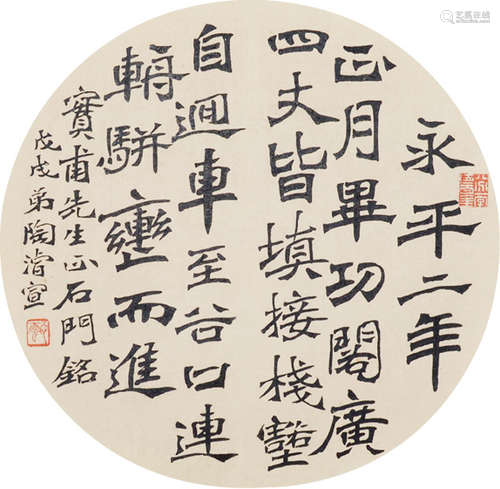 永平二年
正月畢功閣廣
四丈皆填接棧壑
自迴車至谷口連
輈駢轡而進
寶甫先生正石門銘
戊戌弟陶濬宣